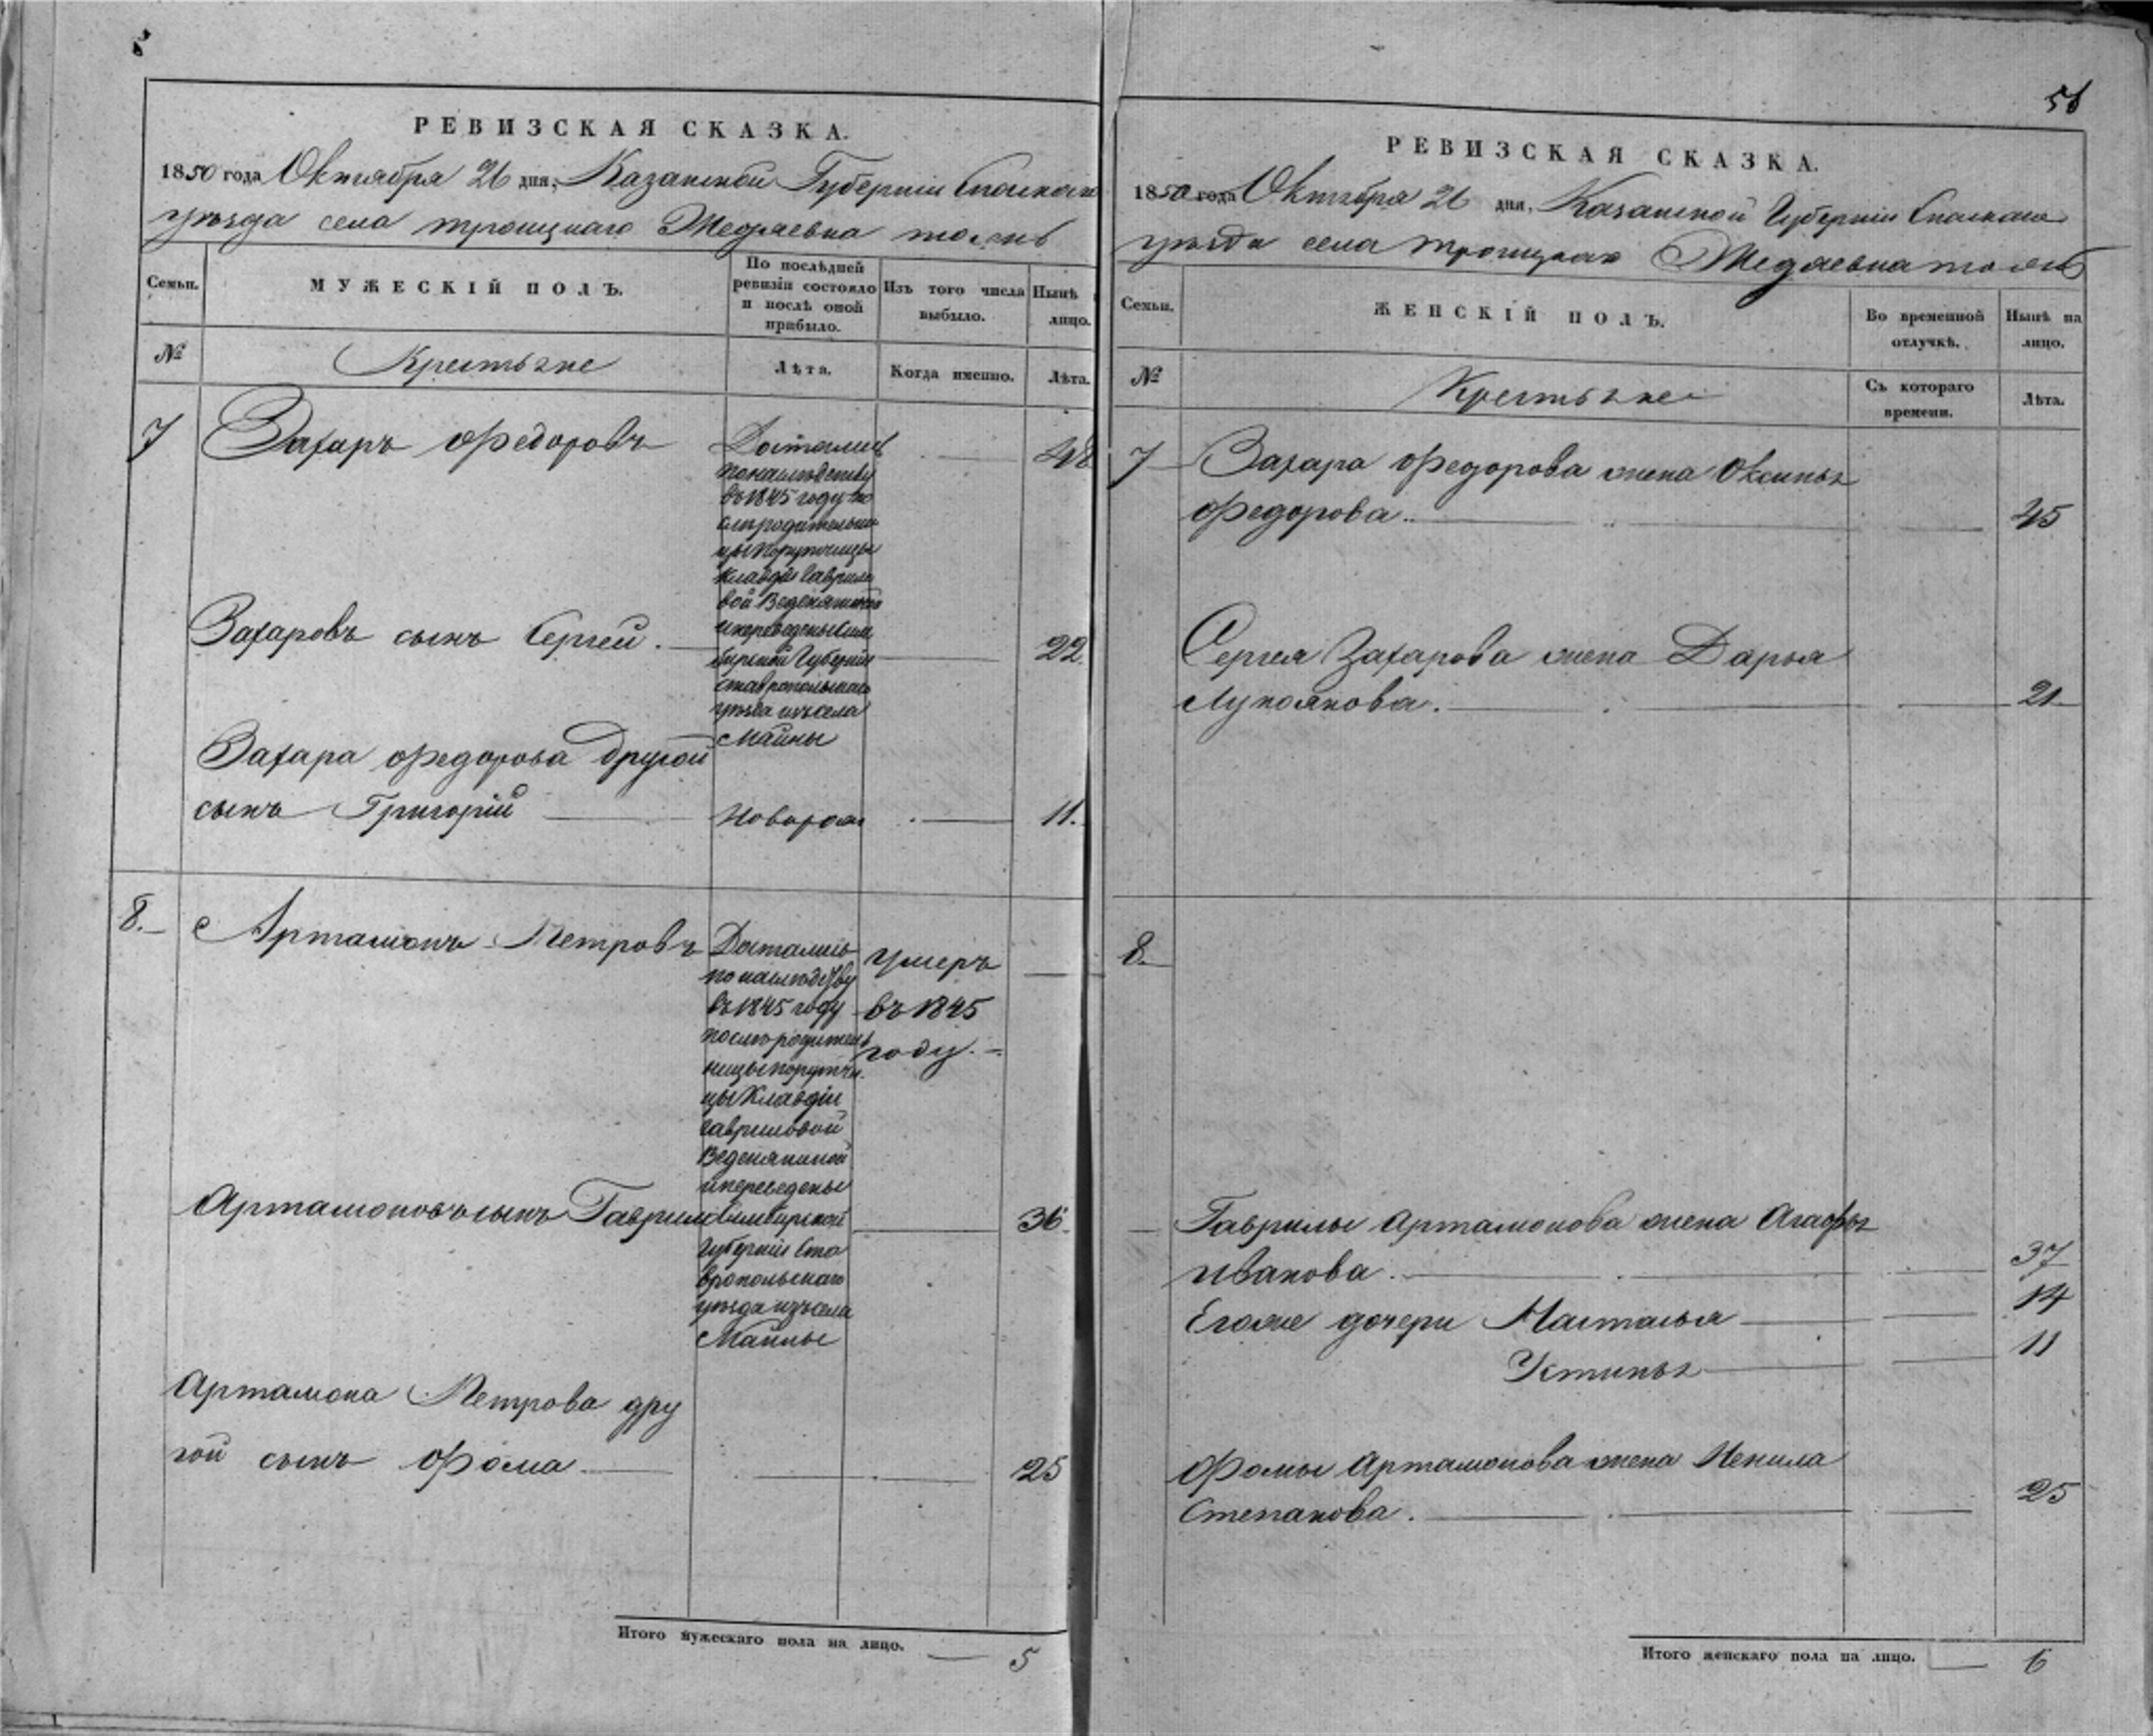 РЕВИЗСКАЯ СКАЗКА.
1850 года Октября 26 дня, Казанской Губерніи Спаскаго
уѣзда села троицкаго Жедяевка тожъ
Семьи.
МУЖЕСКІЙ ПОЛЪ.
По послѣдней
ревизіи состояло
и послѣ оной
прибыло.
Изъ того числа
выбыло.
Нынѣ
лицо.
№
Крестьяне
Лѣта.
Когда именно.
Лѣта.
7
Захаръ Федоровъ
48
Достались
по наслѣдству
въ 1845 году по
слѣ родительни
цы порутчицы
Клавдіи Гаврило
вой Веденяпиной
и переведены Сим
бирской Губерніи
ставропольскаго
уѣзда изъ села
Майны
Захаровъ сынъ Сергей.
22.
Захара Федорова другой
сынъ Григорій
Новорож
11.
8.
Артамонъ Петровъ
Достались
по наслѣдству
въ 1845 году
послѣ родитель
ницы порутчи
цы Клавдіи
Гавриловой
Веденяпиной
и переведены
Симбирской
Губерніи Ста
вропольскаго
уѣзда изъ села
Майны
умеръ
въ 1845
году.
Артамоновъ сынъ Гаврила
36.
Артамона Петрова дру
гой сынъ Фома
25
Итого мужескаго пола на лицо.
5
56
РЕВИЗСКАЯ СКАЗКА.
1850 года Октября 26 дня, Казанской Губерніи Спаскаго
уѣзда села троицкаго Жедяевка тожъ
Семьи.
ЖЕНСКІЙ ПОЛЪ.
Во временной
отлучкѣ.
Нынѣ на
лицо.
№
Крестьяне
Съ котораго
времени.
Лѣта.
7
Захара Федорова жена Оксинья
Федорова.
45
Сергея Захарова жена Дарья
Лукоянова.
21
8.
Гаврилы Артамонова жена Агафья
Иванова.
37
Егоже дочери Настасья
14
Устинья
11
Фомы Артамонова жена Ненила
Степанова.
25
Итого женскаго пола на лицо.
6